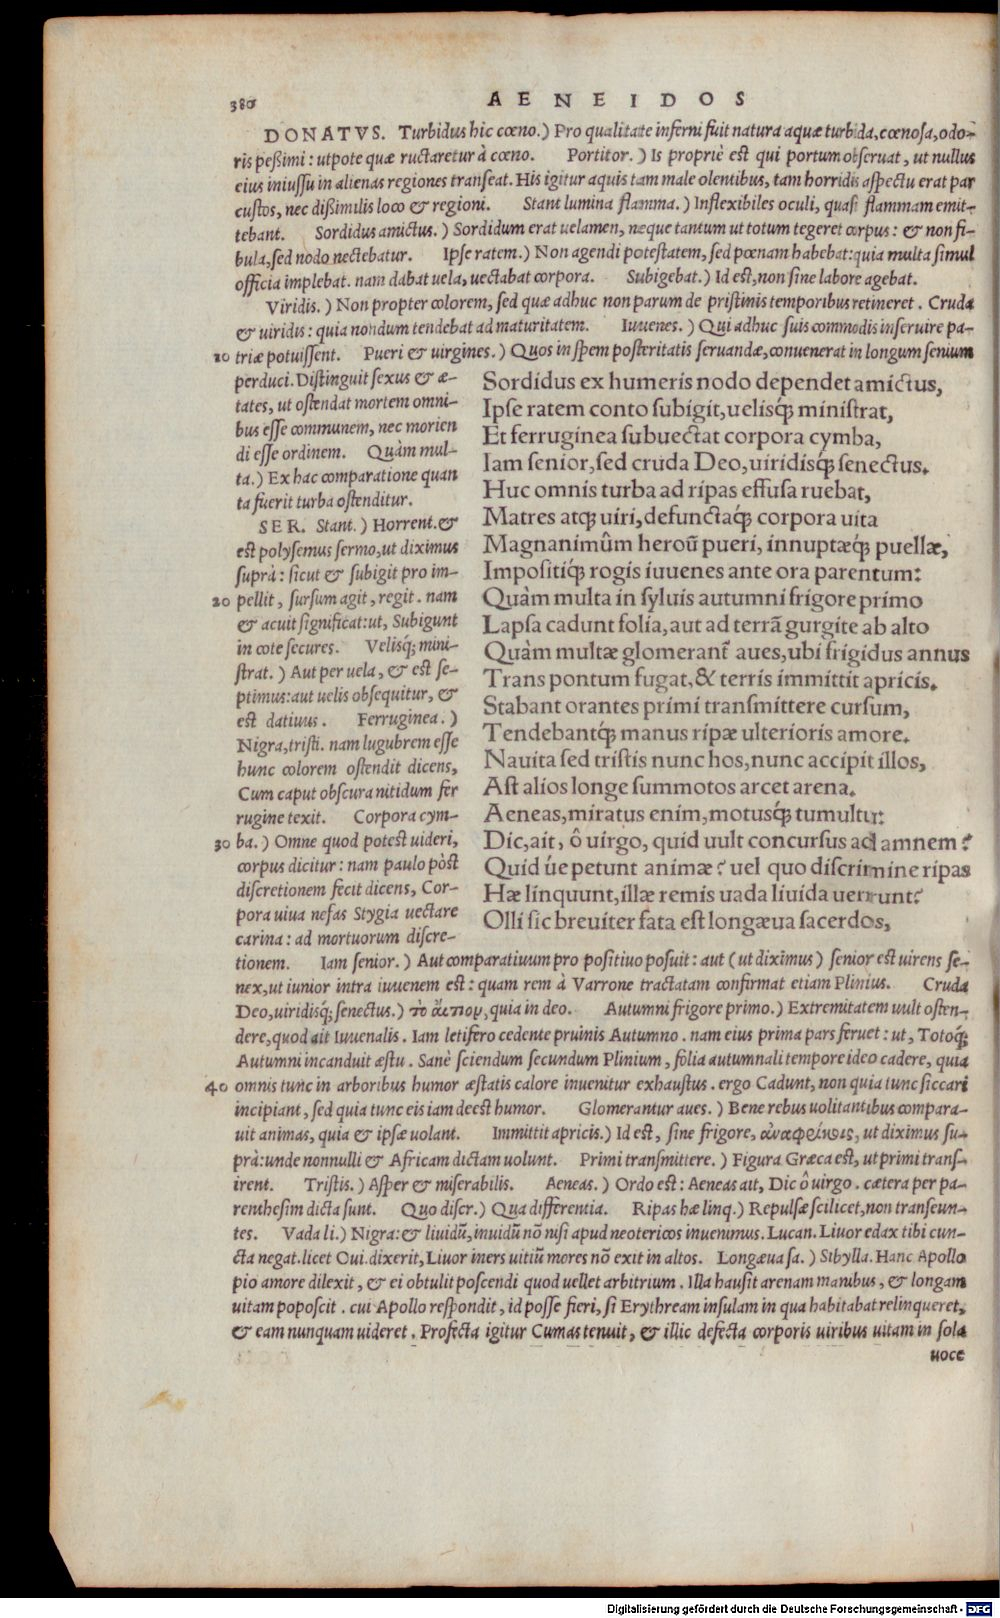 380 AENEIDOS
DONATVS. Turbidus hic cœno.) Pro qualitate inferni fuit natura aquæ turbida, cœnosa, odo-
ris peßimi: utpote quæ ructaretur à cœno. Portitor.) Is propriè est qui portum obseruat, ut nullus
eius iniussu in alienas regiones transeat. His igitur aquis tam male olentibus, tam horridis aspectu erat par
custos, nec dißimilis loco & regioni. Stant lumina flamma.) Inflexibiles oculi, quasi flammam emit-
tebant. Sordidus amictus.) Sordidum erat uelamen, neque tantum ut totum tegeret corpus: & non fi-
bula, sed nodo nectebatur. Ipse ratem.) Non agendi potestatem, sed pœnam habebat: quia multa simul
officia implebat. nam dabat uela, uectabat corpora. Subigebat.) Id est, non sine labore agebat.
Viridis.) Non propter colorem, sed quæ adhuc non parum de pristinis temporibus retineret. Cruda
& uiridis: quia nondum tendebat ad maturitatem. Iuuenes.) Qui adhuc suis commodis inseruire pa-
10 triæ potuissent. Pueri & uirgines.) Quos in spem posteritatis seruandæ, conuenerat in longum senium
perduci. Distinguit sexus & æ-
tates, ut ostendat mortem omni-
bus esse communem, nec morien
di esse ordinem. Quàm mul-
ta.) Ex hac comparatione quan
ta fuerit turba ostenditur.
SER. Stant.) Horrent. &
est polysemus sermo, ut diximus
suprà: sicut & subigit pro im-
20 pellit, sursum agit, regit. nam
& acuit significat: ut, Subigunt
in cote secures. Velisq́; mini-
strat.) Aut per uela, & est se-
ptimus: aut uelis obsequitur, &
est datiuus. Ferruginea.)
Nigra, tristi. nam lugubrem esse
hunc colorem ostendit dicens,
Cum caput obscura nitidum fer
rugine texit. Corpora cym-
30 ba.) Omne quod potest uideri,
corpus dicitur: nam paulo pòst
discretionem fecit dicens, Cor-
pora uiua nefas Stygia uectare
carina: ad mortuorum discre-
Sordidus ex humeris nodo dependet amictus,
Ipse ratem conto subigit, uelisq́; ministrat,
Et ferruginea subuectat corpora cymba,
Iam senior, sed cruda Deo, uiridisq́; senectus.
Huc omnis turba ad ripas effusa ruebat,
Matres atq; uiri, defunctaq́; corpora uita
Magnanimûm heroũ pueri, innuptæq́; puellæ,
Impositiq́; rogis iuuenes ante ora parentum:
Quàm multa in syluis autumni frigore primo
Lapsa cadunt folia, aut ad terrã gurgite ab alto
Quàm multæ glomerant̃ aues, ubi frigidus annus
Trans pontum fugat, & terris immittit apricis.
Stabant orantes primi transmittere cursum,
Tendebantq́; manus ripæ ulterioris amore.
Nauita sed tristis nunc hos, nunc accipit illos,
Ast alios longe summotos arcet arena.
Aeneas, miratus enim, motusq́; tumultu:
Dic, ait, ô uirgo, quid uult concursus ad amnem?
Quid úe petunt animæ? uel quo discrimine ripas
Hæ linquunt, illæ remis uada liuida uerrunt?
Olli sic breuiter fata est longæua sacerdos,
tionem. Iam senior.) Aut comparatiuum pro positiuo posuit: aut (ut diximus) senior est uirens se-
nex, ut iunior intra iuuenem est: quam rem à Varrone tractatam confirmat etiam Plinius. Cruda
Deo, uiridisq́; senectus.) τὸ αἴτιον, quia in deo. Autumni frigore primo.) Extremitatem uult osten-
dere, quod ait Iuuenalis. Iam letifero cedente pruinis Autumno. nam eius prima pars feruet: ut, Totoq́;
Autumni incanduit æstu. Sanè sciendum secundum Plinium, folia autumnali tempore ideo cadere, quia
40 omnis tunc in arboribus humor æstatis calore inuenitur exhaustus. ergo Cadunt, non quia tunc siccari
incipiant, sed quia tunc eis iam deest humor. Glomerantur aues.) Bene rebus uolitantibus compara-
uit animas, quia & ipsæ uolant. Immittit apricis.) Id est, sine frigore, ut diximus su-
prà: unde nonnulli & Africam dictam uolunt. Primi transmittere.) Figura Græca est, ut primi trans-
irent. Tristis.) Asper & miserabilis. Aeneas.) Ordo est: Aeneas ait, Dic ô uirgo. cætera per pa-
renthesim dicta sunt. Quo discr.) Qua differentia. Ripas hæ linq.) Repulsæ scilicet, non transeun-
tes. Vada li.) Nigra: & liuidũ, inuidũ nõ nisi apud neotericos inuenimus. Lucan. Liuor edax tibi cun-
cta negat. licet Oui. dixerit, Liuor iners uitiũ mores nõ exit in altos. Longæua sa.) Sibylla. Hanc Apollo
pio amore dilexit, & ei obtulit poscendi quod uellet arbitrium. Illa hausit arenam manibus, & longam
uitam poposcit. cui Apollo respondit, id posse fieri, si Erythream insulam in qua habitabat relinqueret,
& eam nunquam uideret. Profecta igitur Cumas tenuit, & illic defecta corporis uiribus uitam in sola
uoce
Digitalisierung gefördert durch die Deutsche Forschungsgemeinschaft - DFG